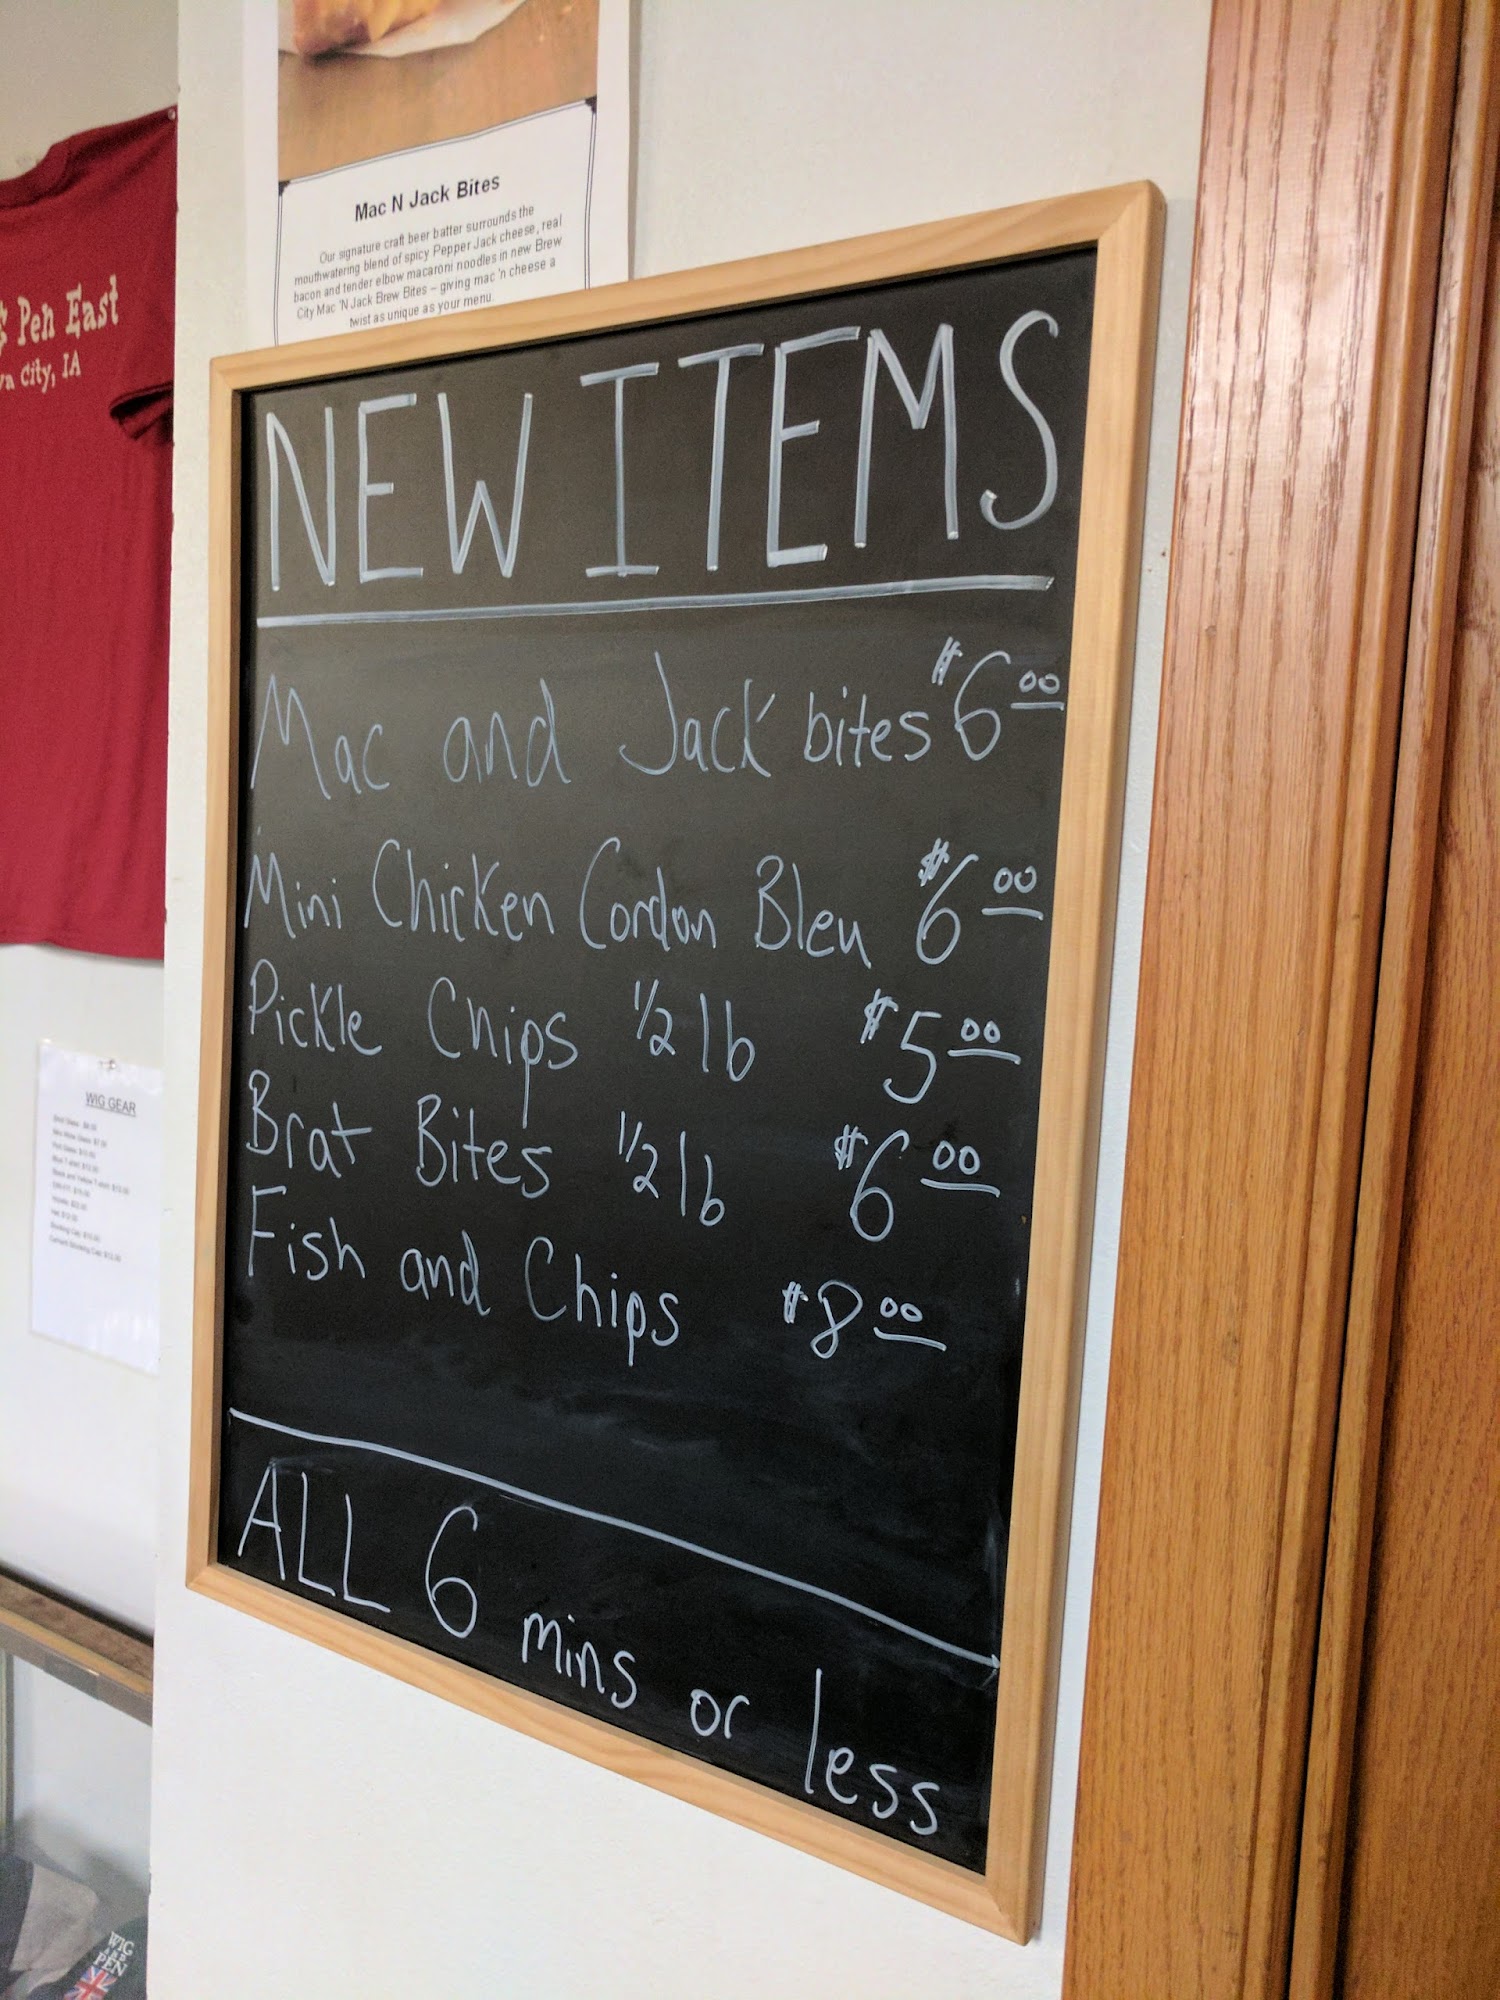 Mac N Jack Bites
Our signature craft beer batter surrounds the
mouthwatering blend of spicy Pepper Jack cheese, real
bacon and tender elbow macaroni noodles in new Brew
City Mac 'N Jack Brew Bites – giving mac 'n cheese a
twist as unique as your menu.
Pen East
City, IA
NEW ITEMS
Mac and Jack bites $6 00
Mini Chicken Cordon Bleu $6 00
Pickle Chips 1/2 lb $5 00
Brat Bites 1/2 lb $6 00
Fish and Chips $8 00
ALL 6 mins or less
WIG GEAR
WIG
AND
PEN